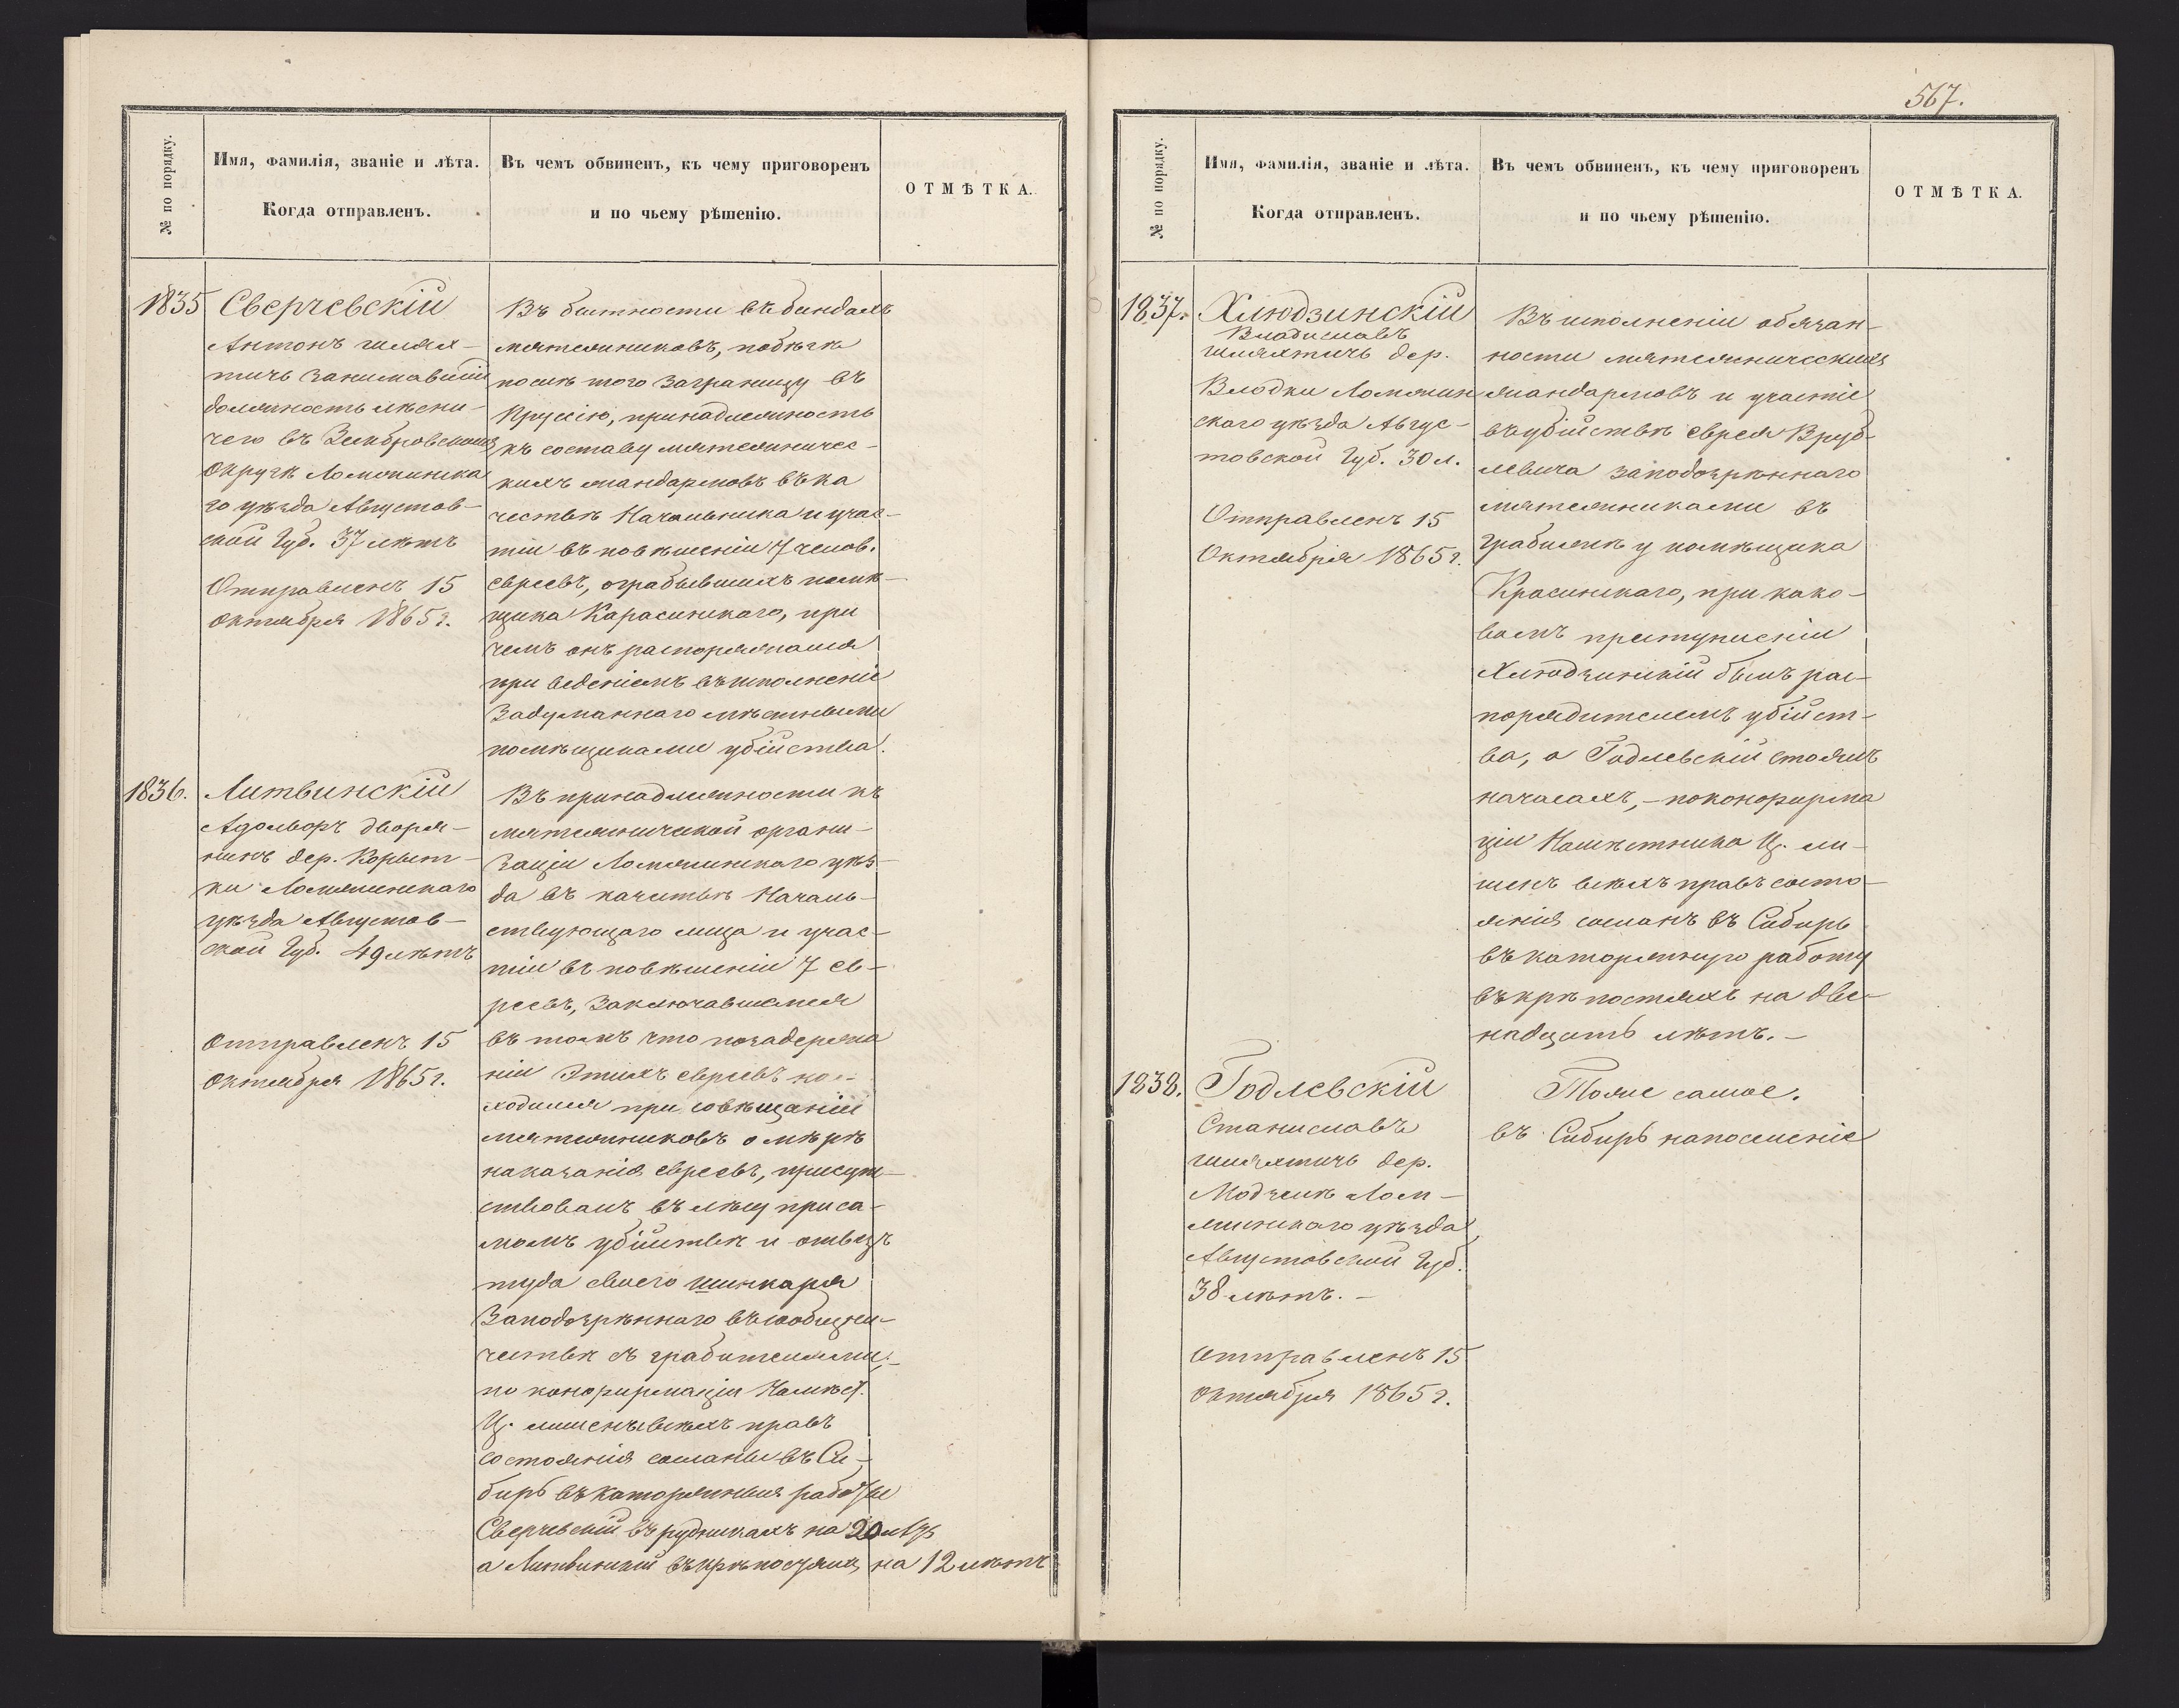 № по порядку.
Имя, фамилія, званіе и лѣта.
Когда отправленъ.
Въ чемъ обвиненъ, къ чему приговоренъ
и по чьему рѣшенію.
ОТМѢТКА.
1835 Сверчевскій
Антонъ шлях-
тичь занимавшій
должность лѣсни-
чего въ Замбровскомъ
Округѣ Ломжинска
го уѣзда Августов-
ской Губ. 37 лѣтъ
Отправленъ 15
октября 1865 г.
Въ бытности въ бандахъ
мятежниковъ, побѣгѣ
послѣ того заграницу въ
Пруссію, принадлежность
къ составу мятежничес-
кихъ жандармовъ въ ка
чествѣ Начальника и учас-
тіи въ повѣшеніи 7 челов.
евреевъ, ограбывшихъ помѣ-
щика Карасинскаго, при
чемъ онъ распоряжался
при веденіемъ въ исполненіе
задуманнаго мѣстными
помѣщиками убійства.
1836. Литвинскій
Адольфъ дворя-
нинъ дер. Корыт-
ки Ломжинскаго
уѣзда Августов-
ской Губ. 49 лѣтъ
Отправленъ 15
октября 1865 г.
Въ принадлежности къ
мятежнической органи-
заціи Ломжинскаго уѣз-
да въ качествѣ Началь-
ствующаго лица и учас-
тіи въ повѣшеніи 7 ев-
реевъ, заключавшемся
въ томъ что по задержа
ніи этихъ евреевъ на-
ходился при совѣщаніи
мятежниковъ о мѣрѣ
наказанія евреевъ, присут-
ствовалъ въ лѣсу при са-
момъ убійствѣ и отвезъ
туда своего шинкаря
заподозрѣннаго въ сообщни-
чествѣ съ грабителями;-
по конфирмаціи Намѣст.
Ц. лишены всѣхъ правъ
состоянія сосланы въ Си-
бирь въ каторжныя работы
Сверчевскій въ рудникахъ на 20 лѣтъ
а Литвинскій въ крѣпостяхъ на 12 лѣтъ
567.
№ по порядку.
Имя, фамилія, званіе и лѣта.
Когда отправленъ.
Въ чемъ обвиненъ, къ чему приговоренъ
и по чьему рѣшенію.
ОТМѢТКА.
1837. Хлюдзинскій
Владиславъ
шляхтичь дер.
Влодки Ломжин
скаго уѣзда Авгус-
товской Губ. 30 л.
Отправленъ 15
Октября 1865 г.
Въ исполненіи обязан-
ности мятежническихъ
жандармовъ и участіе
въ убійствѣ еврея Вруб-
левича заподозрѣннаго
мятежниками въ
грабежѣ у помѣщика
Красинскаго, при како-
вомъ преступленіи
Хлюдзинскій былъ рас-
порядителемъ убійст-
ва, а Годлевскій стоялъ
на часахъ,- по конфирма
ціи Намѣстника Ц. ли-
шенъ всѣхъ правъ состо-
янія сосланъ въ Сибирь
въ каторжную работу
въ крѣпостяхъ на две-
надцать лѣтъ.-
1838. Годлевскій
Станиславъ
шляхтичь дер.
Модзеле Лом-
жинскаго уѣзда
Августовской Губ.
38 лѣтъ.-
Отправленъ 15
октября 1865 г.
Тоже самое.
въ Сибирь на поселеніе